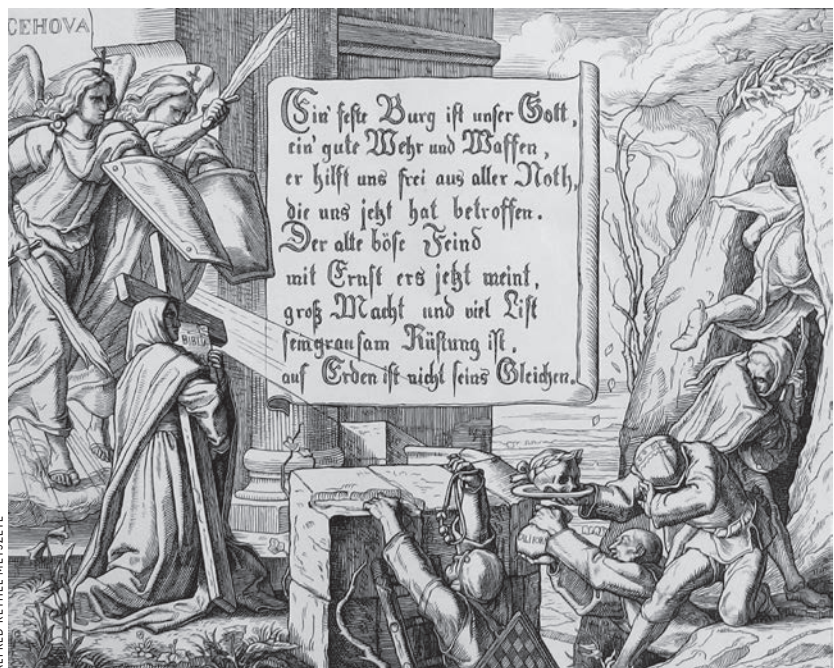 CEHOVA
Ein' feste Burg ist unser Gott,
ein' gute Wehr und Waffen,
er hilft uns frei aus aller Noth,
die uns jetzt hat betroffen.
Der alte böse Feind
mit Ernst ers jetzt meint,
groß Macht und viel List
sein grausam Rüstung ist,
auf Erden ist nicht seins Gleichen.
RETHEL METSZETE